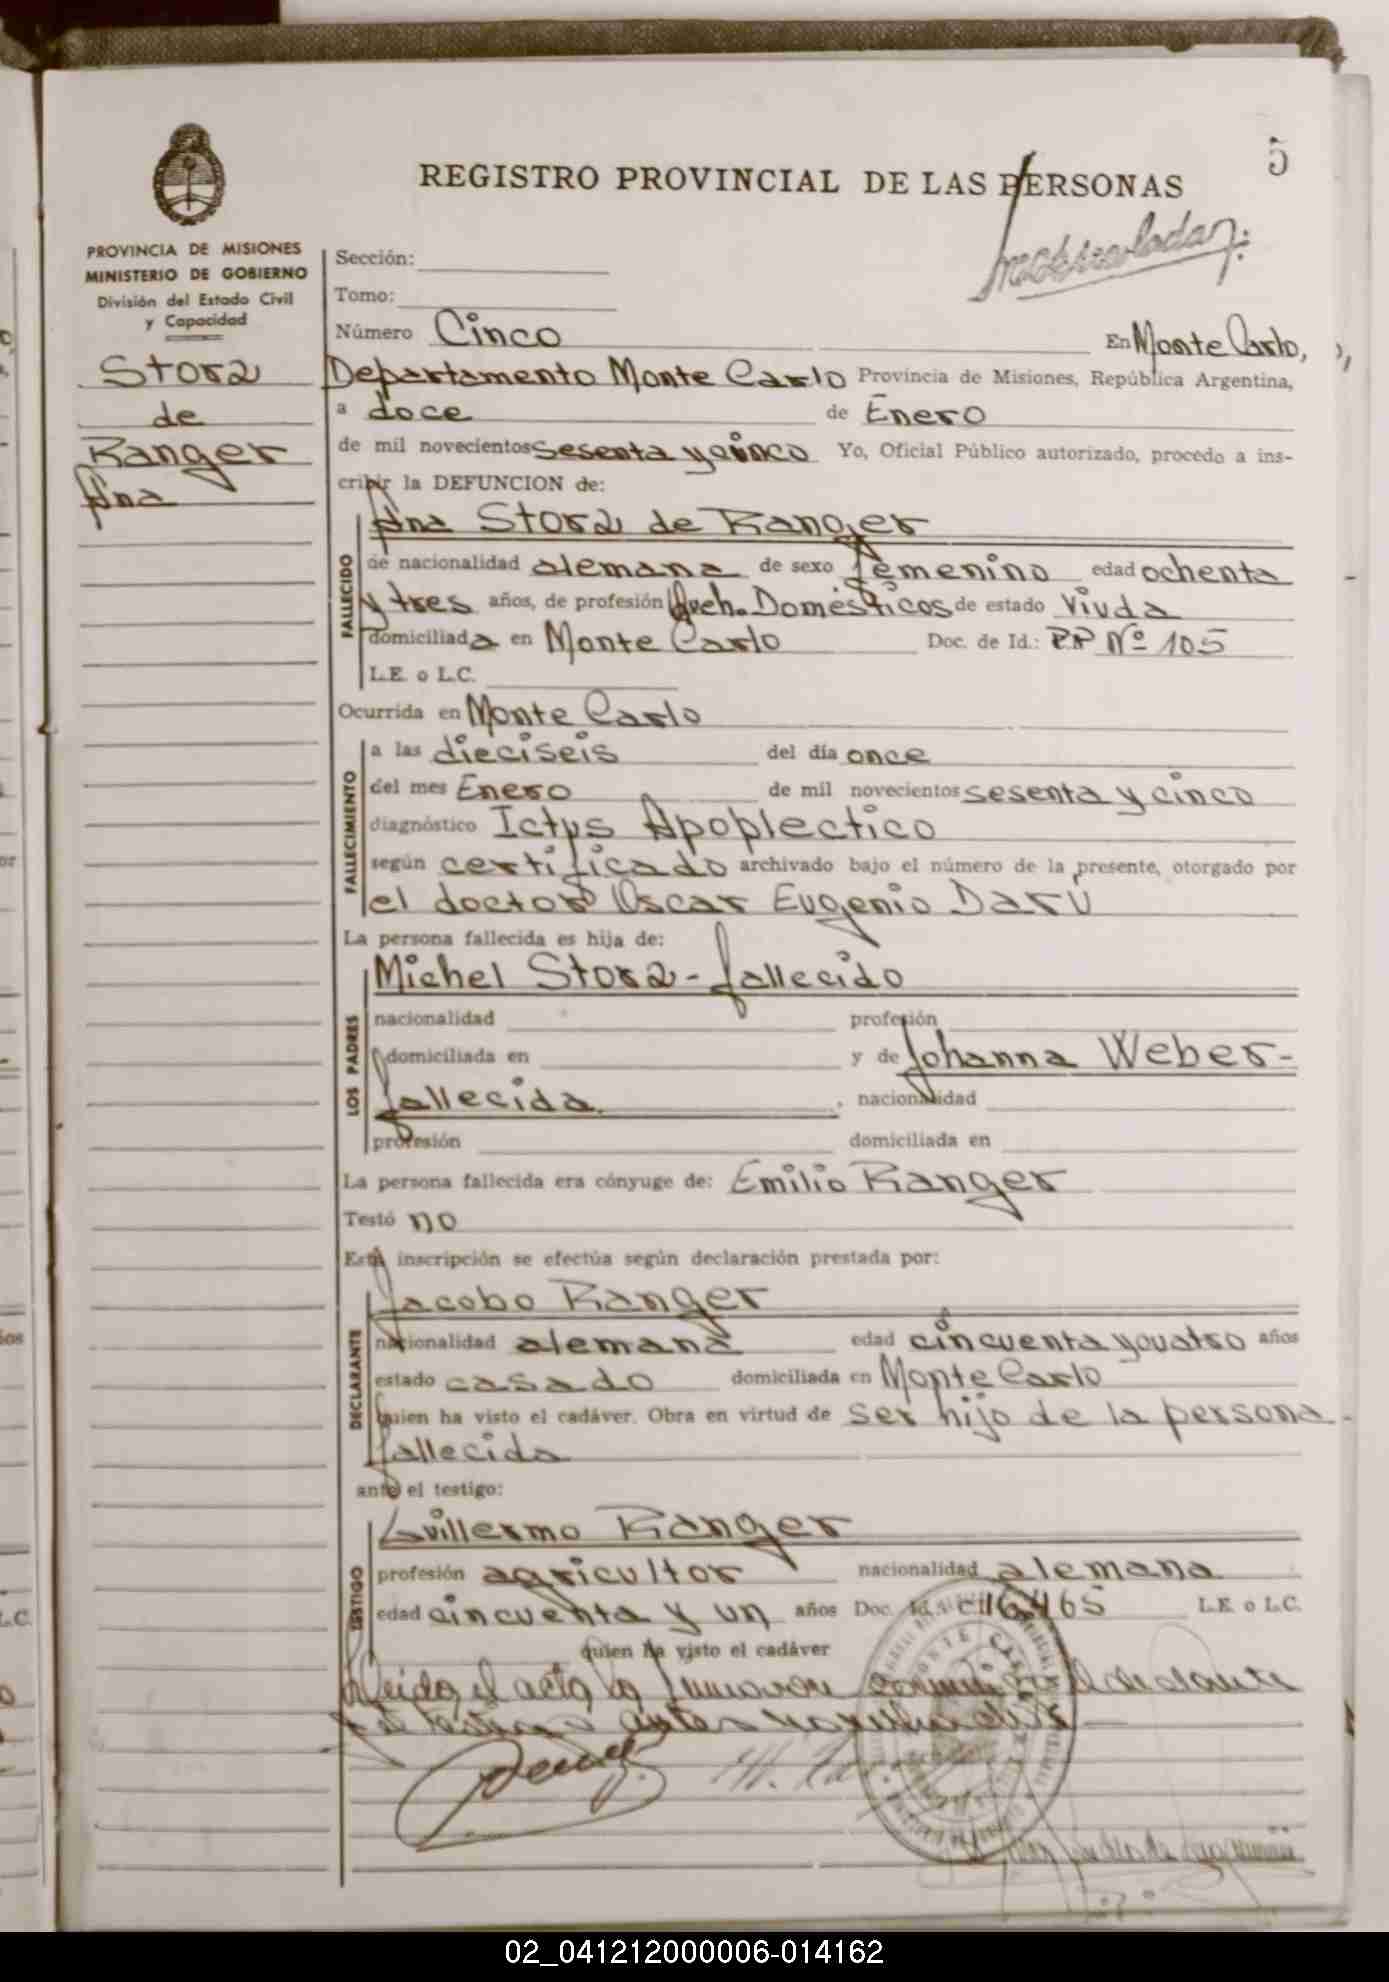 5
REGISTRO PROVINCIAL DE LAS PERSONAS
PROVINCIA DE MISIONES
MINISTERIO DE GOBIERNO
División del Estado Civil
y Capacidad
Storz
de
Ranger
Ana
Sección:
Tomo:
Número Cinco En Monte Carlo,
Departamento Monte Carlo Provincia de Misiones, República Argentina,
a doce de Enero
de mil novecientos sesenta y cinco Yo, Oficial Público autorizado, procedo a ins-
cribir la DEFUNCION de:
FALLECIDO
Ana Storz de Ranger
de nacionalidad alemana de sexo femenino edad ochenta
y tres años, de profesión Queh. Domésticos de estado Viuda
domiciliada en Monte Carlo Doc. de Id.: P.P Nº 105
L.E. o L.C.
Ocurrida en Monte Carlo
FALLECIMIENTO
a las dieciseis del día once
del mes Enero de mil novecientos sesenta y cinco
diagnóstico Ictus Apoplectico
según certificado archivado bajo el número de la presente, otorgado por
el doctor Oscar Eugenio Darú
La persona fallecida es hija de:
LOS PADRES
Michel Storz - fallecido
nacionalidad profesión
domiciliada en y de Johanna Weber -
fallecida. , nacionalidad
profesión domiciliada en
La persona fallecida era cónyuge de: Emilio Ranger
Testó no
Esta inscripción se efectúa según declaración prestada por:
DECLARANTE
Jacobo Ranger
nacionalidad alemana edad cincuenta y cuatro años
estado casado domiciliada en Monte Carlo
quien ha visto el cadáver. Obra en virtud de ser hijo de la persona -
fallecida
ante el testigo:
TESTIGO
Guillermo Ranger
profesión agricultor nacionalidad alemana
edad cincuenta y un años Doc. Id.: C.I 16465 L.E. o L.C.
quien ha visto el cadáver
Leida el acta la
02_041212000006-014162